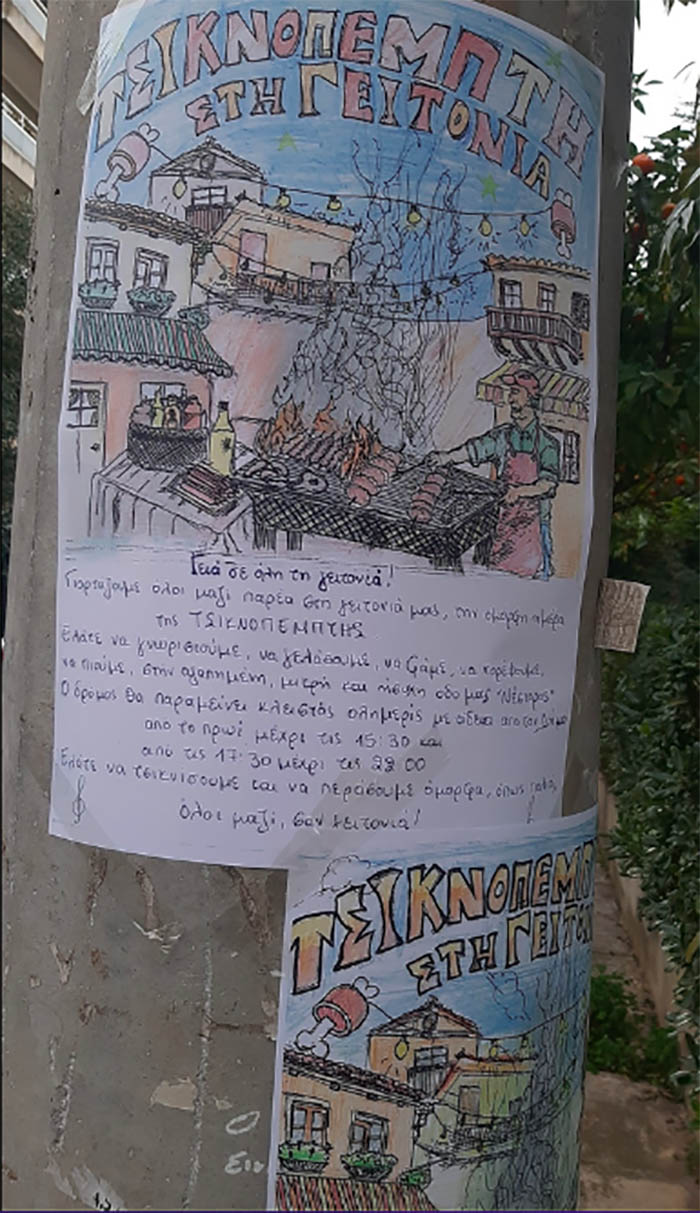 ΤΣΙΚΝΟΠΕΜΠΤΗ
ΣΤΗ ΓΕΙΤΟΝΙΑ
Γειά σε όλη τη γειτονιά!
Γιορτάζουμε όλοι μαζί παρέα στη γειτονιά μας, την όμορφη ημέρα
της ΤΣΙΚΝΟΠΕΜΠΤΗΣ
Ελάτε να γνωριστούμε, να γελάσουμε, να φάμε, να χορέψουμε,
να πιούμε, στην αγαπημένη, μικρή και ήσυχη οδο μας "Νέστορος"
Ο δρόμος θα παραμείνει κλειστός ολημερίς με άδεια απο τον Δήμο
απο το πρωί μέχρι τις 15:30 και
από τις 17:30 μέχρι τις 22:00
Ελάτε να τσικνίσουμε και να περάσουμε όμορφα, όπως παλιά,
όλοι μαζί, σαν γειτονιά!
ΤΣΙΚΝΟΠΕΜΠ
ΣΤΗ ΓΕΙΤΟΝ